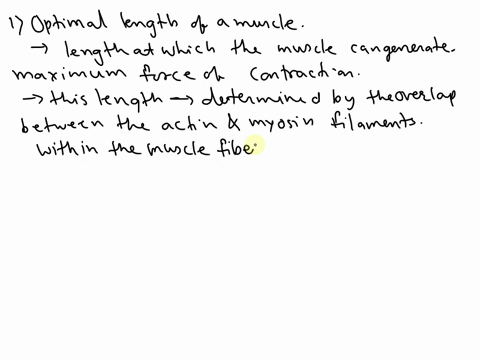 1) Optimal length of a muscle.
→ length at which the muscle can generate
maximum force of contraction.
→ this length → determined by the overlap
between the actin & myosin filaments.
within the muscle fibe